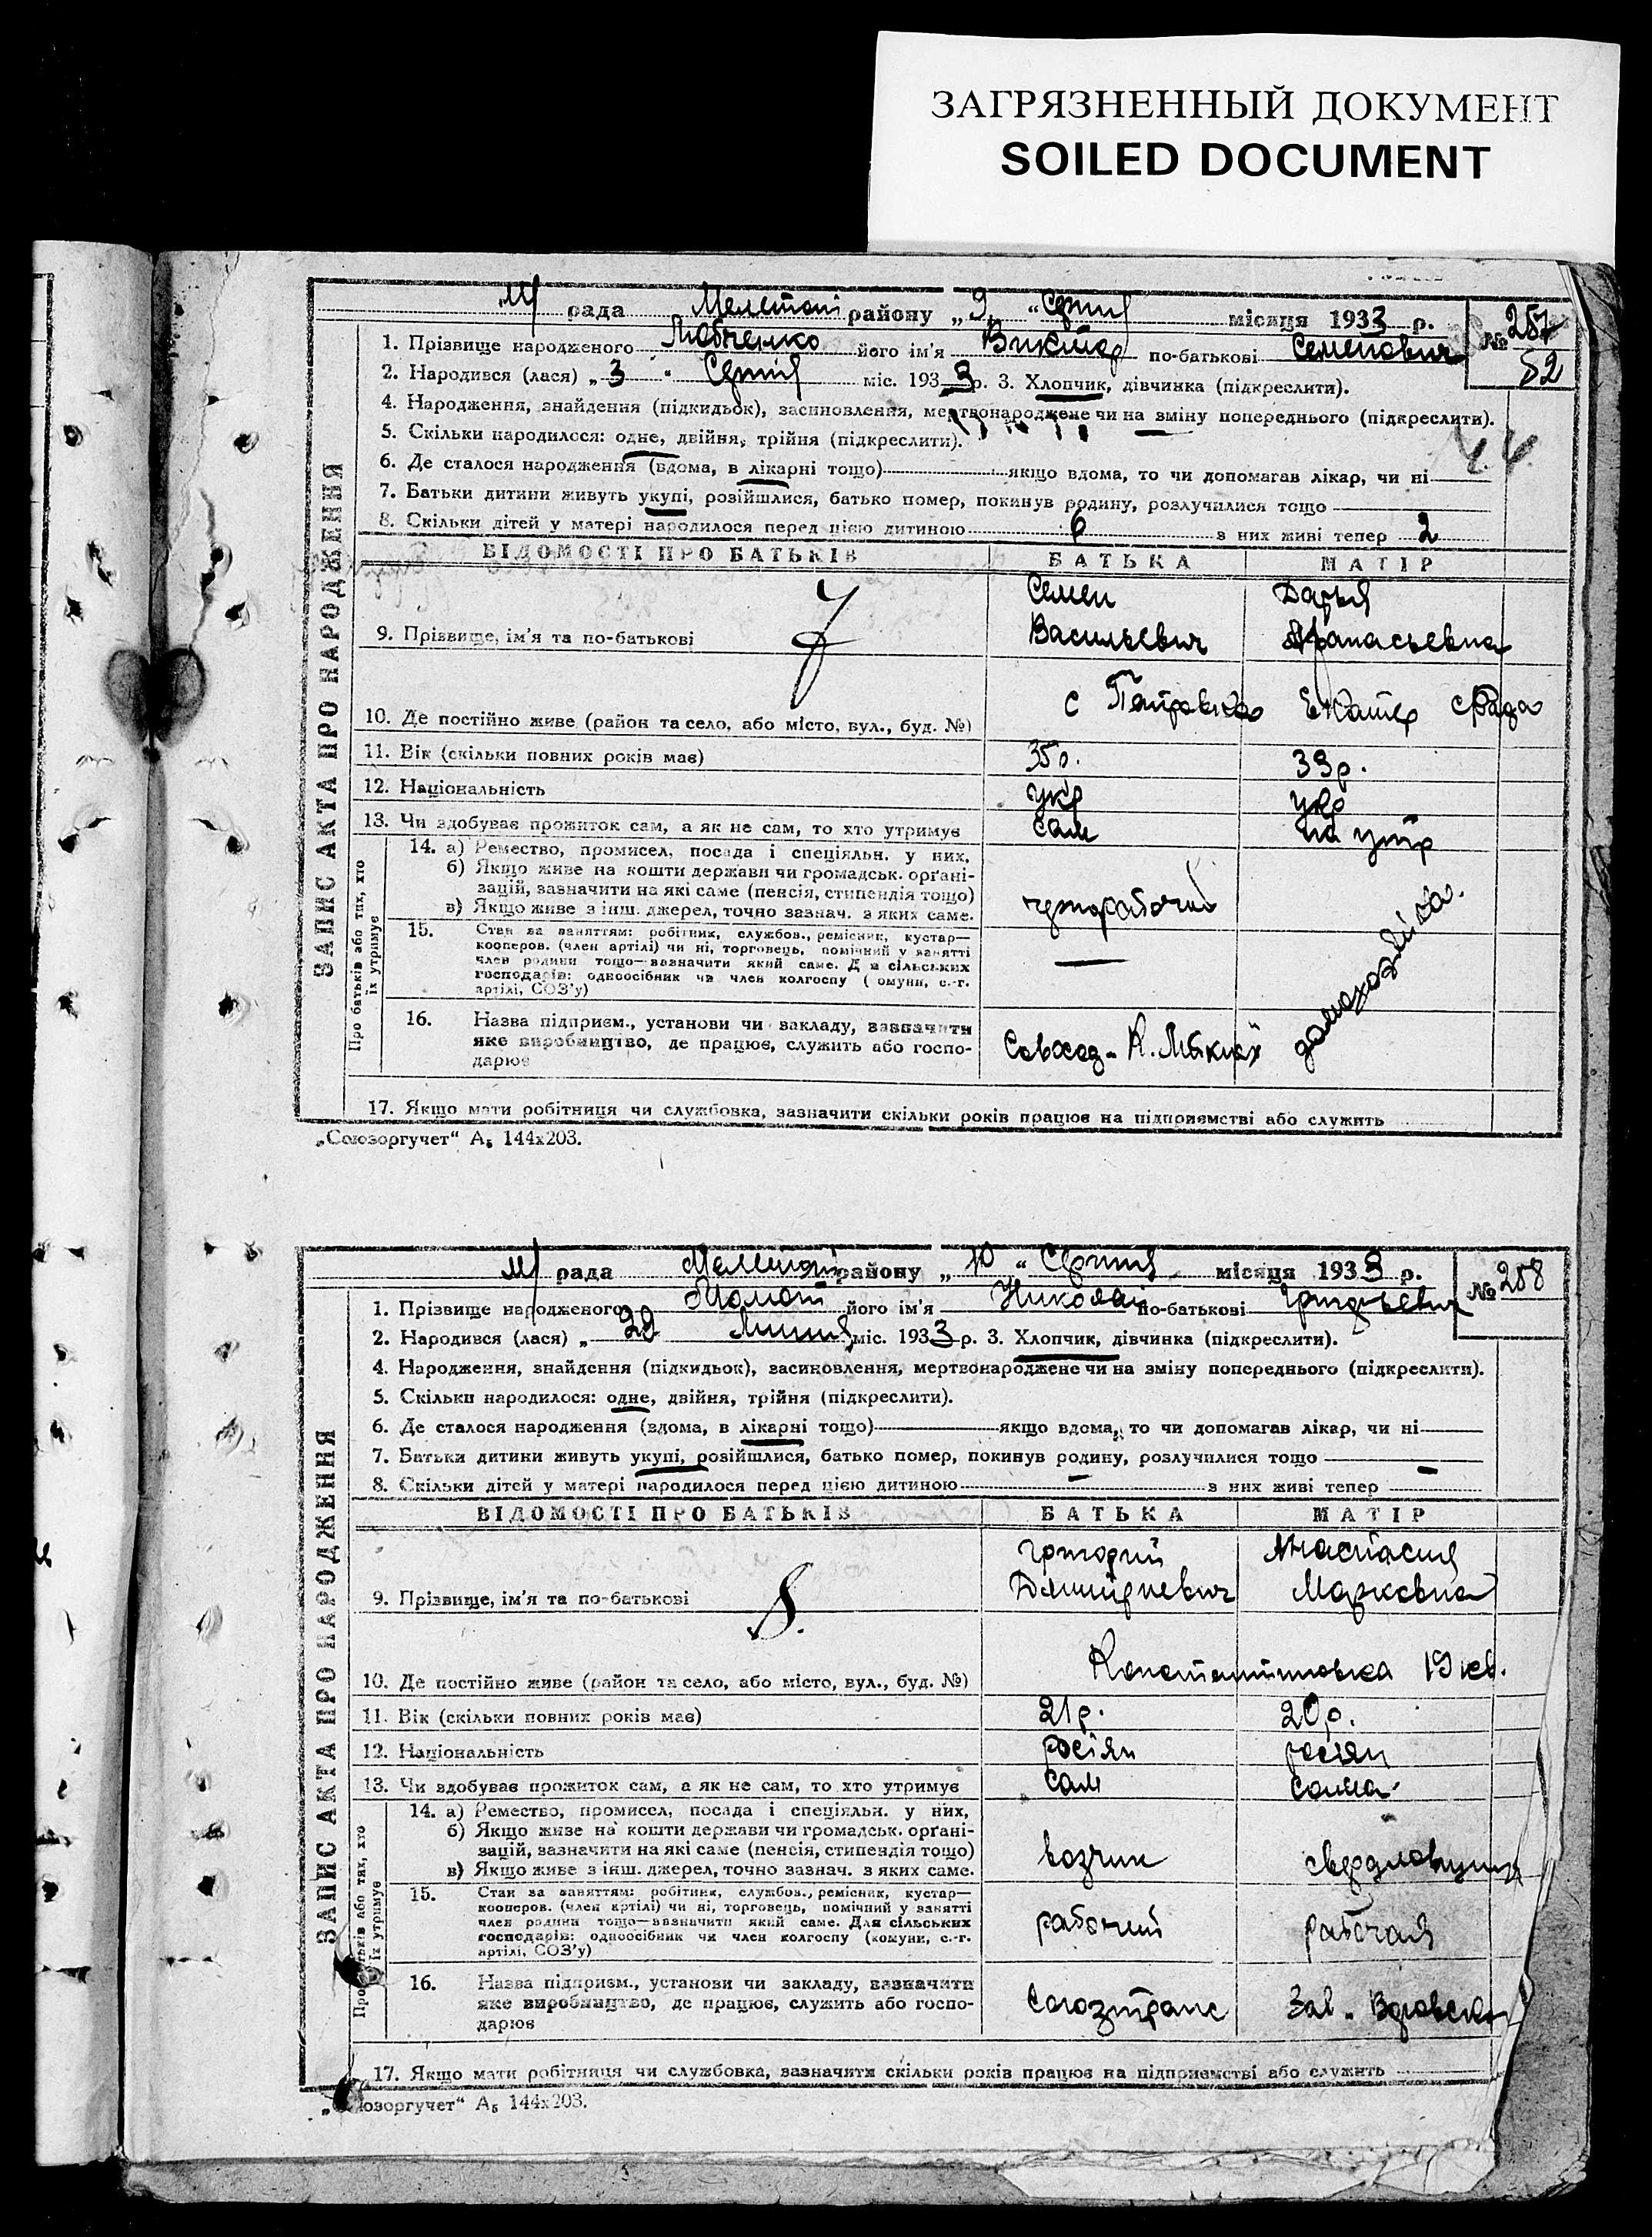 ЗАГРЯЗНЕННЫЙ ДОКУМЕНТ
SOILED DOCUMENT
ЗАПИС АКТА ПРО НАРОДЖЕННЯ
М/ рада Мелітоп району „9 “ Серпня місяця 1933 р.
№ 257
52
1. Прізвище народженого його ім'я Виктор по-батькові Семенович
2. Народився (лася) „ 3 “ Серпня міс. 1933 р. 3. Хлопчик, дівчинка (підкреслити).
4. Народження, знайдення (підкидьок), засиновлення, мертвонароджене чи на зміну попереднього (підкреслити).
5. Скільки народилося: одне, двійня, трійня (підкреслити).
6. Де сталося народження (вдома, в лікарні тощо) якщо вдома, то чи допомагав лікар, чи ні
7. Батьки дитини живуть укупі, розійшлися, батько помер, покинув родину, розлучилися тощо
8. Скільки дітей у матері народилося перед цією дитиною 6 з них живі тепер 2
ВІДОМОСТІ ПРО БАТЬКІВ БАТЬКА МАТІР
7
Семен Дарья
9. Прізвище, ім'я та по-батькові Васильевич Афанасьевна
10. Де постійно живе (район та село, або місто, вул., буд. №) с
11. Вік (скільки повних років має) 35р. 33р.
12. Національність укр укр
13. Чи здобуває прожиток сам, а як не сам, то хто утримує сам на утр
Про батьків або тих, хто їх утримує
14. а) Ремество, промисел, посада і спеціяльн. у них.
б) Якщо живе на кошти держави чи громадськ. органі-
зацій, зазначити на які саме (пенсія, стипендія тощо)
в) Якщо живе з інш. джерел, точно зазнач. з яких саме.
чернорабочий
домохозяйка.
15. Стан за заняттям: робітник, службов., ремісник, кустар—
кооперов. (член артілі) чи ні, торговець, помічний у занятті
член родини тощо—зазначити який саме. Для сільських
господарів: одноосібник чи член колгоспу (комуни, с.-г.
артілі, СОЗ'у)
16. Назва підприєм., установи чи закладу, зазначити
яке виробництво, де працює, служить або госпо-
дарює
Совхоз
17. Якщо мати робітниця чи службовка, зазначити скільки років працює на підприємстві або служить
„Союзоргучет“ А5 144х203.
ЗАПИС АКТА ПРО НАРОДЖЕННЯ
М/ рада Мелітоп району „ 10 “ Серпня місяця 1933 р.
№ 258
1. Прізвище народженого його ім'я Николай по-батькові Григорьевич
2. Народився (лася) „ 29 Липня міс. 1933 р. 3. Хлопчик, дівчинка (підкреслити).
4. Народження, знайдення (підкидьок), засиновлення, мертвонароджене чи на зміну попереднього (підкреслити).
5. Скільки народилося: одне, двійня, трійня (підкреслити).
6. Де сталося народження (вдома, в лікарні тощо) якщо вдома, то чи допомагав лікар, чи ні
7. Батьки дитини живуть укупі, розійшлися, батько помер, покинув родину, розлучилися тощо
8. Скільки дітей у матері народилося перед цією дитиною — з них живі тепер —
ВІДОМОСТІ ПРО БАТЬКІВ БАТЬКА МАТІР
8.
Григорий Анастасия
9. Прізвище, ім'я та по-батькові Дмитриевич Марковна
10. Де постійно живе (район та село, або місто, вул., буд. №) Константиновка 19 кв.
11. Вік (скільки повних років має) 21р. 20р.
12. Національність росіян росіян
13. Чи здобуває прожиток сам, а як не сам, то хто утримує сам сама
14. а) Ремество, промисел, посада і спеціяльн. у них.
б) Якщо живе на кошти держави чи громадськ. органі-
зацій, зазначити на які саме (пенсія, стипендія тощо)
в) Якщо живе з інш. джерел, точно зазнач. з яких саме.
возчик
15. Стан за заняттям: робітник, службов., ремісник, кустар—
кооперов. (член артілі) чи ні, торговець, помічний у занятті
член родини тощо—зазначити який саме. Для сільських
господарів: одноосібник чи член колгоспу (комуни, с.-г.
артілі, СОЗ'у)
рабочий рабочая
16. Назва підприєм., установи чи закладу, зазначити
яке виробництво, де працює, служить або госпо-
дарює
Союзтранс Зав.
17. Якщо мати робітниця чи службовка, зазначити скільки років працює на підприємстві або служить
юзоргучет“ А5 144х203.